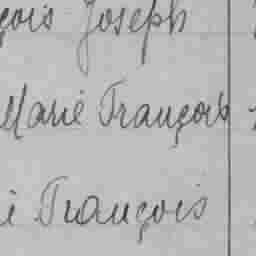 çois Joseph
Marie François
i François